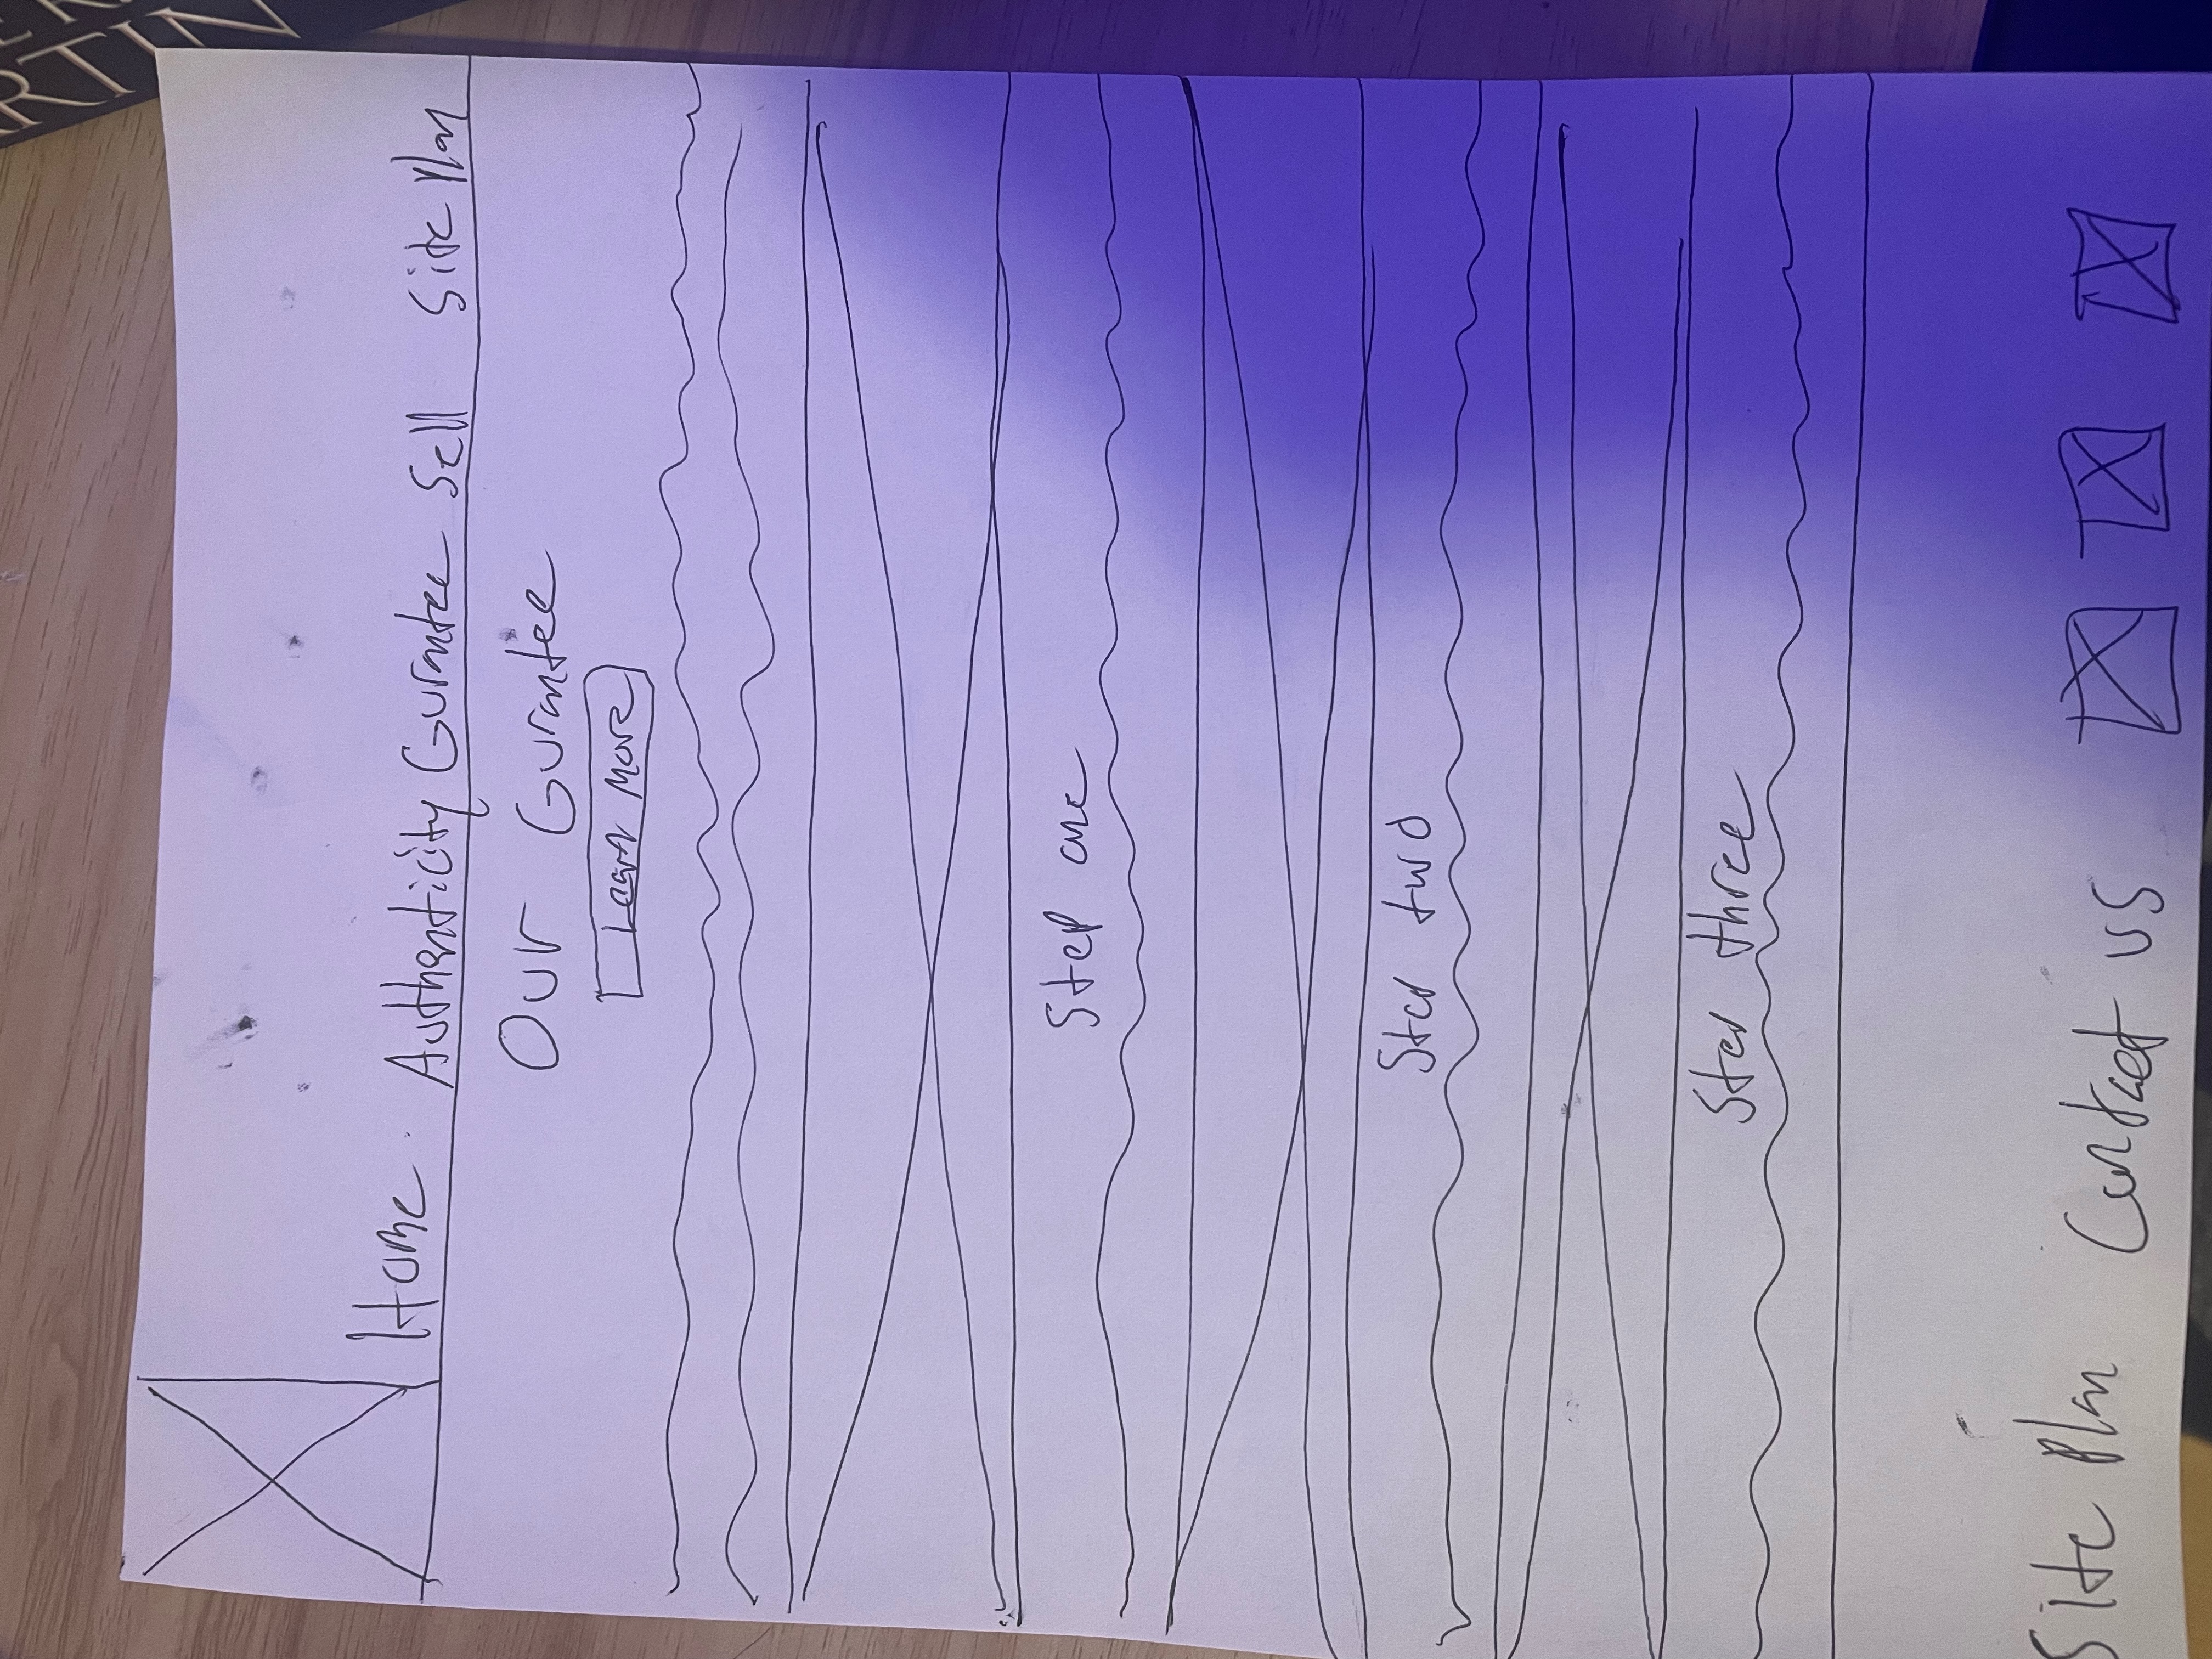 RTIN
Home Authenticity Gurantee Sell Site Plan
Our Gurantee
Learn More
Step one
Step two
Step three
Site Plan Contact us